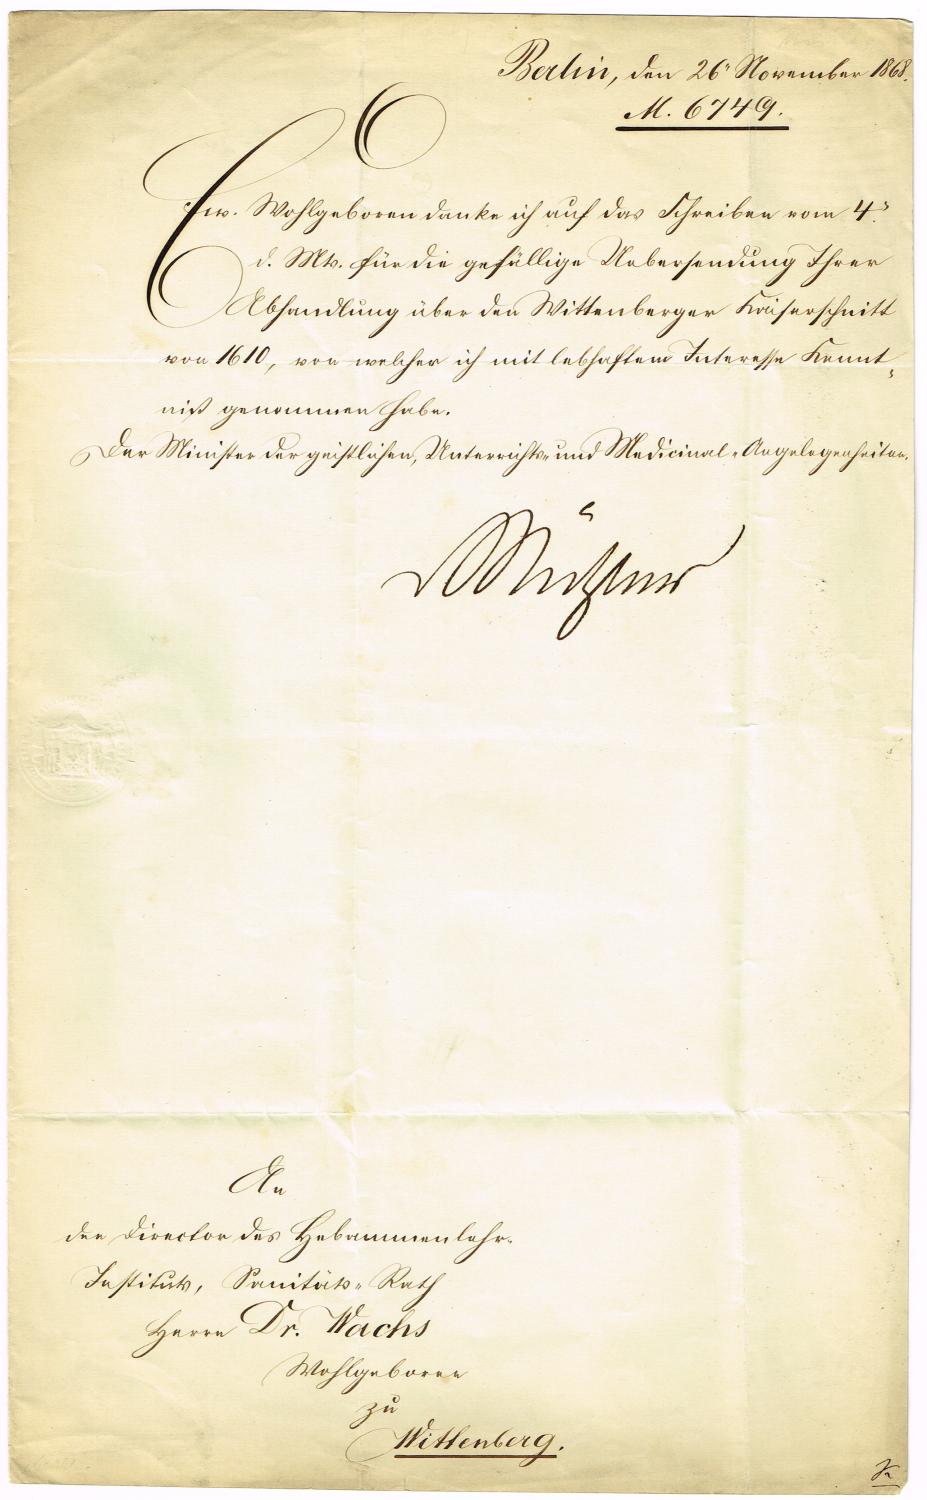 Berlin, den 26' November 1868.
M. 6749.
Ew. Wohlgeboren danke ich auf das Schreiben vom 4
d. Mts. für die gefällige Uebersendung Ihrer
Abhandlung über den Wittenberger Kaiserschnitt
von 1610, von welcher ich mit lebhaftem Interesse Kennt-
niß genommen habe.
Der Minister der geistlichen, Unterrichts- und Medicinal-Angelegenheiten.
vMühler
An
den Director des Hebammenlehr-
Instituts, Sanitäts-Rath
Herrn Dr. Wachs
Wohlgeboren
zu
Wittenberg.